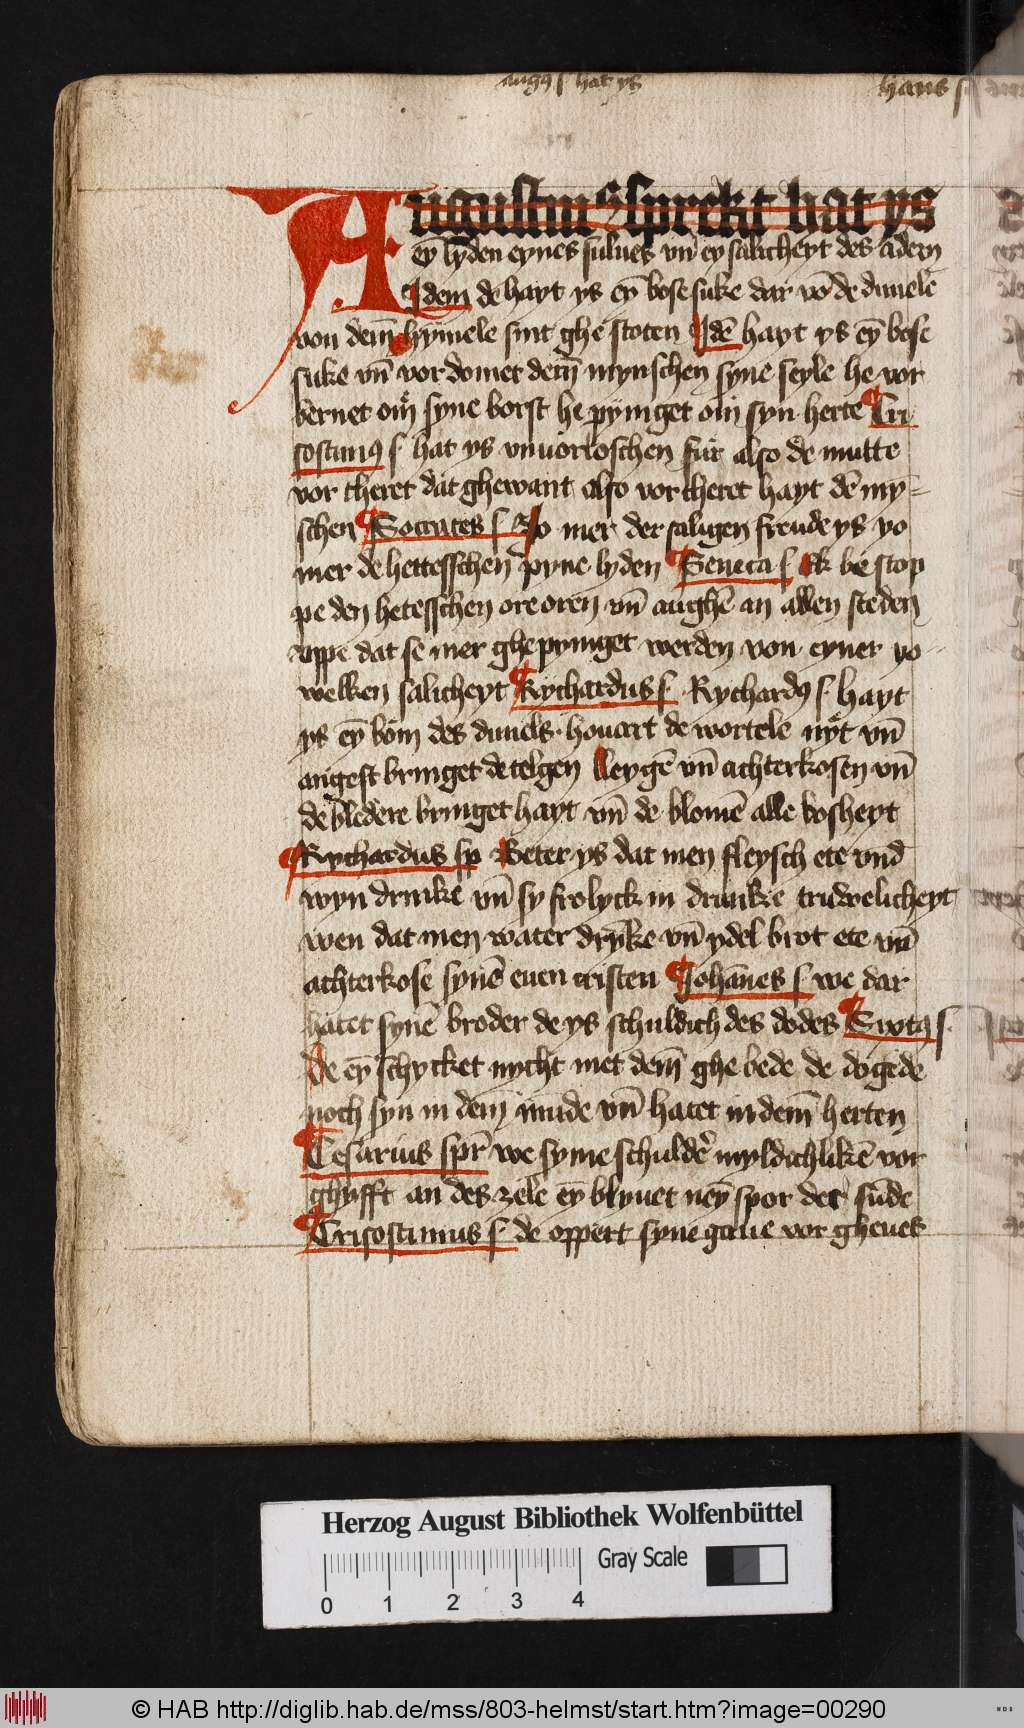 augꝰ s hat ys
hans s
Augustinꝰ sprekt hat ys
eȳ lyden eynes sulues vn̄ ey salicheyt des andern
Idem de hayt ys eȳ bose suke dar vō de duuele
von dem̄ hymele sint ghe stoten Idē hayt ys eȳ bose
suke vn̄ vor domet dem̄ mynschen syne seyle he vor
bernet om̄ syne borst he pyniget om̄ syn herte Cri
sostimꝰ s hat ys vnuorloschen fur also de mutte
vor theret dat ghewant also vor theret hayt dē my=
schen Socrates s Jo mer der saligen freude ys yo
mer de hettesschen pyne lyden Seneca s Ik be stop
pe den hetesschen ore oren vn̄ aughē an allen steden
uppe dat se mer ghe pyniget werden von eyner yo=
welken salicheyt Rychardus s Rychardꝰ s hayt
ys eȳ bom des duuels houart de wortele nyt vn̄
angest bringet de telgen Leygē vn̄ achterkosen vn̄
de bledere bringet hayt vn̄ de blomē alle bosheyt
Rychardus sp Beter ys dat men fleysch ete vnd
wyn drinke vn̄ sy frolyck in drunke truwelicheyt
wen dat men water drȳke vn̄ ydel brot ete vn̄
achterkose synē euen cristen Johānes s we dar
hatet synē broder de ys schuldich des dodes Sixtꝰ s
De eȳ schycket nycht met dem̄ ghe bede de dogede
noch syn in dem̄ mūde vn̄ hatet in dem̄ herten
Cesarius spr̄ we syme schulder myldichlikē vor
ghyfft an des zele eȳ blyuet neȳ spor der sūde
Crisostimus s de oppert syne gaue vor gheues
Herzog August Bibliothek Wolfenbüttel
Gray Scale
0 1 2 3 4
© HAB http://diglib.hab.de/mss/803-helmst/start.htm?image=00290